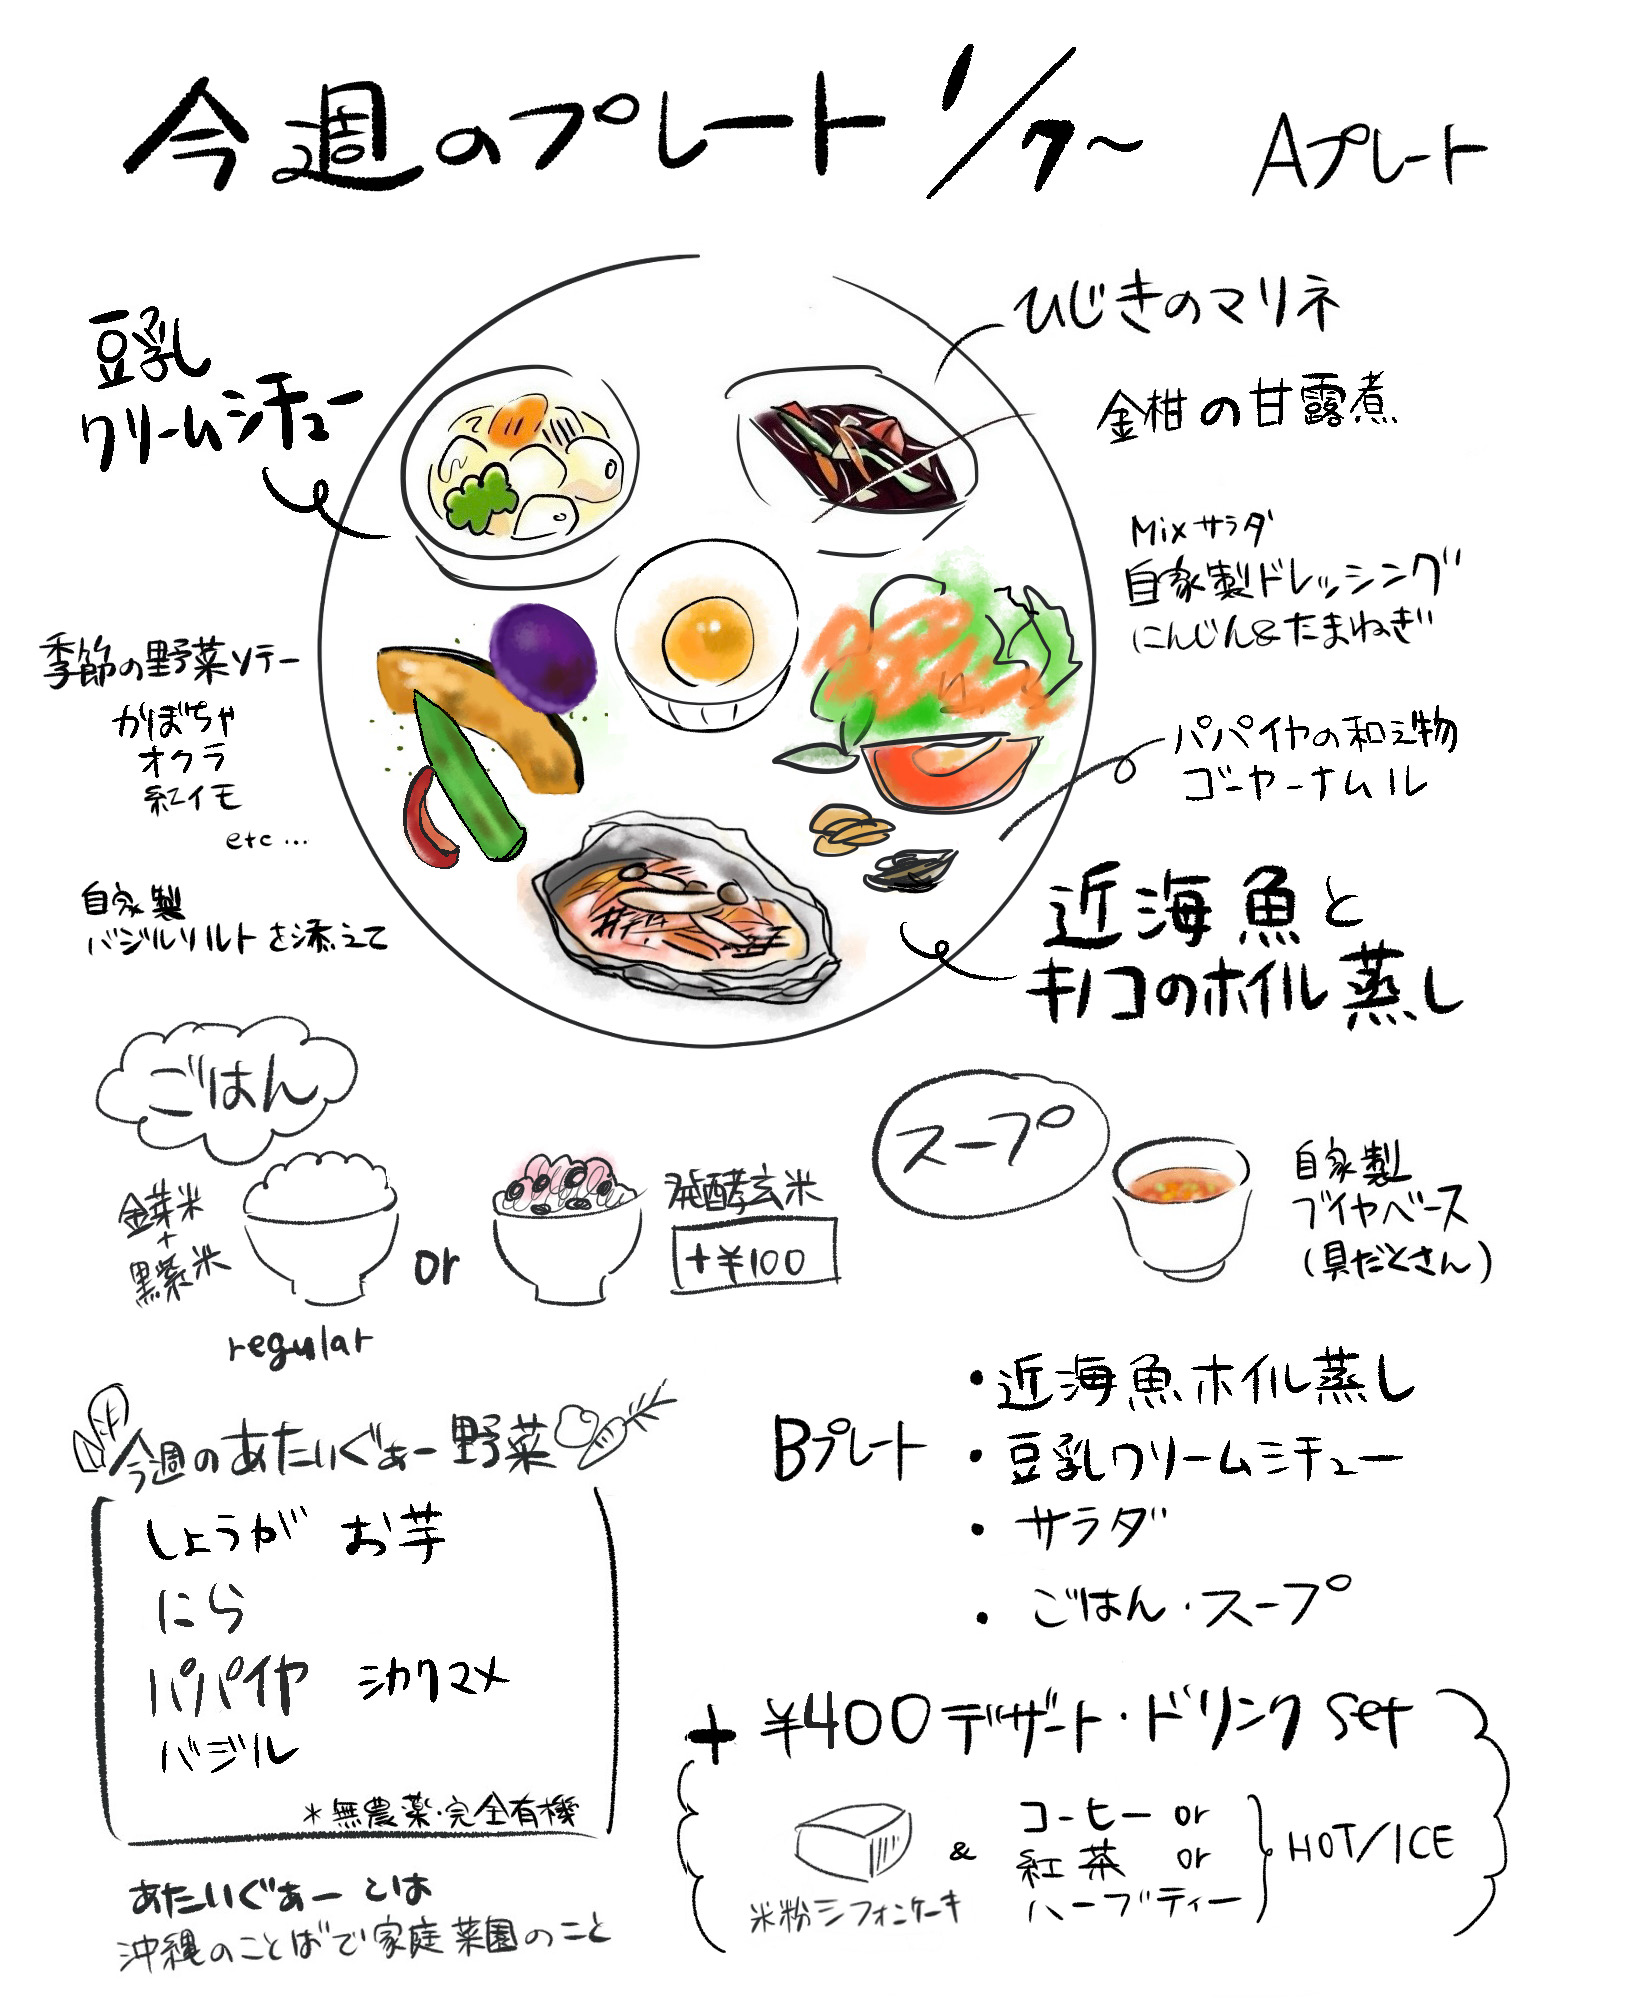 今週のプレート 1/7〜 Aプレート
豆乳
クリームシチュー
ひじきのマリネ
金柑の甘露煮
Mixサラダ
自家製ドレッシング
にんじん&たまねぎ
季節の野菜ソテー
かぼちゃ
オクラ
紅イモ
etc...
自家製
バジルソルトを添えて
パパイヤの和え物
ゴーヤーナムル
近海魚と
キノコのホイル蒸し
ごはん
金芽米
+
黒紫米
regular
or
発酵玄米
+¥100
スープ
自家製
ブイヤベース
(具だくさん)
今週のあたいぐぁー野菜
しょうが お芋
にら
パパイヤ シカクマメ
バジル
*無農薬・完全有機
あたいぐぁーとは
沖縄のことばで家庭菜園のこと
Bプレート
・近海魚ホイル蒸し
・豆乳クリームシチュー
・サラダ
・ごはん・スープ
+¥400デザート・ドリンクset
米粉シフォンケーキ
&
コーヒーor
紅茶 or
ハーブティー
HOT/ICE